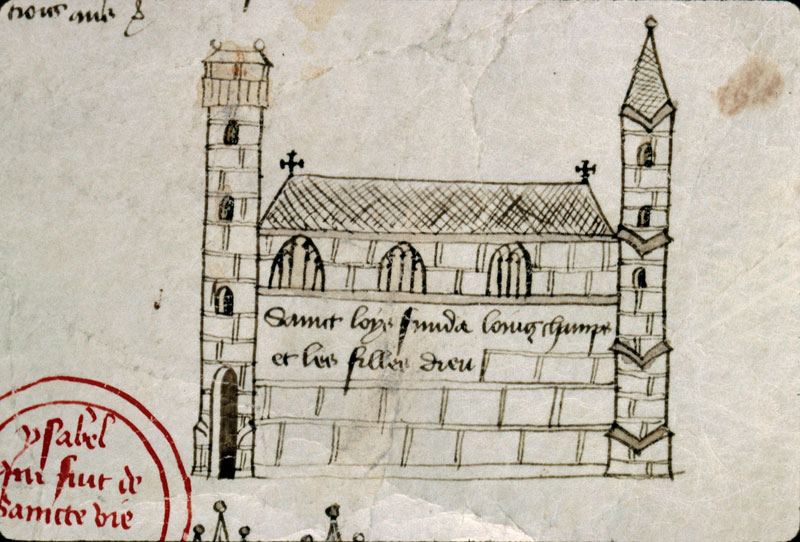 Sainct loys funda loingchampz
et les filles dieu
ysabel
qui fut de
saincte vie